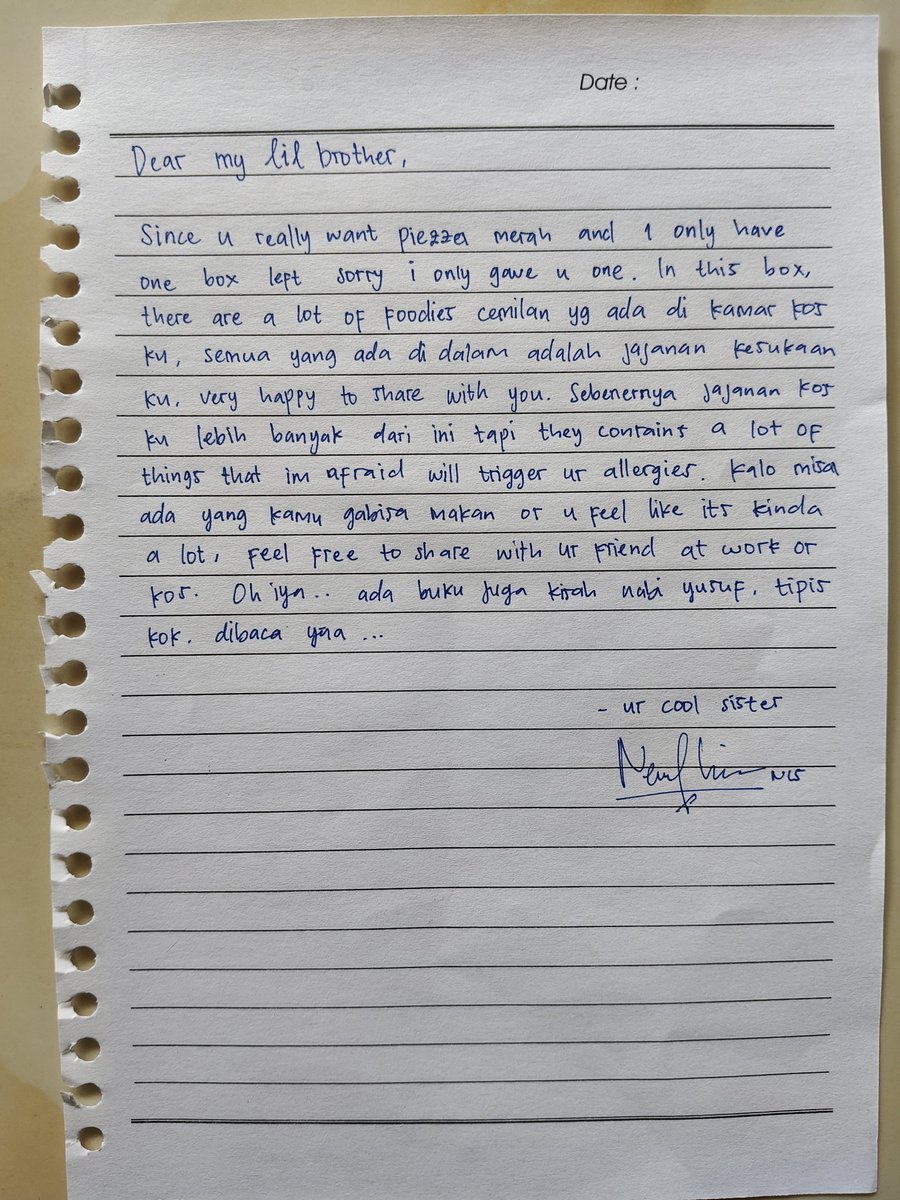 Date :
Dear my lil brother,
Since u really want piezza merah and I only have
one box left sorry i only gave u one. In this box,
there are a lot of foodies cemilan yg ada di kamar kos
ku, semua yang ada di dalam adalah jajanan kesukaan
ku. very happy to share with you. Sebenernya jajanan kos
ku lebih banyak dari ini tapi they contains a lot of
things that im afraid will trigger ur allergies. Kalo misa
ada yang kamu gabisa makan or u feel like its kinda
a lot, feel free to share with ur friend at work or
kos. Oh iya.. ada buku juga kisah nabi yusuf. tipis
kok. dibaca yaa ...
- ur cool sister
NLS